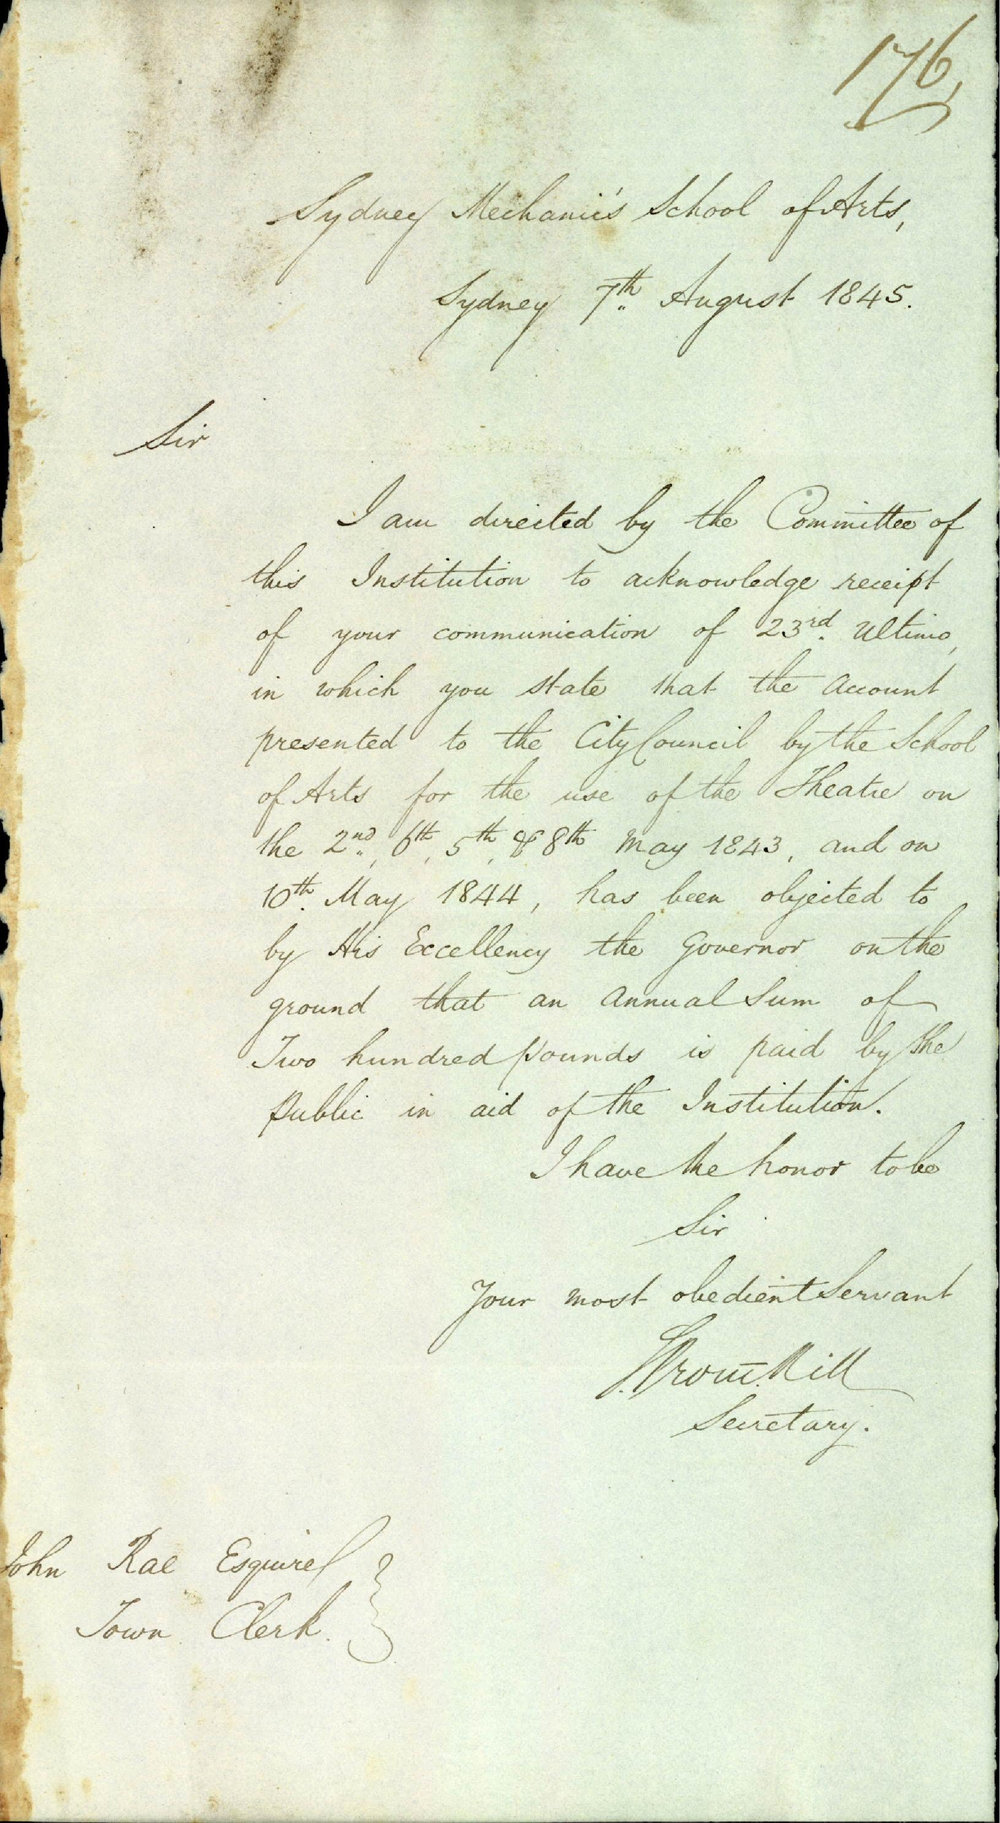 176,
Sydney Mechanic's School of Arts,
Sydney 7th August 1845.
Sir
I am directed by the Committee of
this Institution to acknowledge receipt
of your communication of 23rd Ultimo,
in which you state that the account
presented to the City Council by the School
of Arts for the use of the Theatre on
the 2nd, 6th, 5th, & 8th May 1843, and on
10th May 1844, has been objected to
by His Excellency the Governor on the
ground that an annual Sum of
Two hundred pounds is paid by the
Public in aid of the Institution.
I have the honor to be
Sir
Your most obedient Servant
Secretary.
John Rae Esquire
Town Clerk.